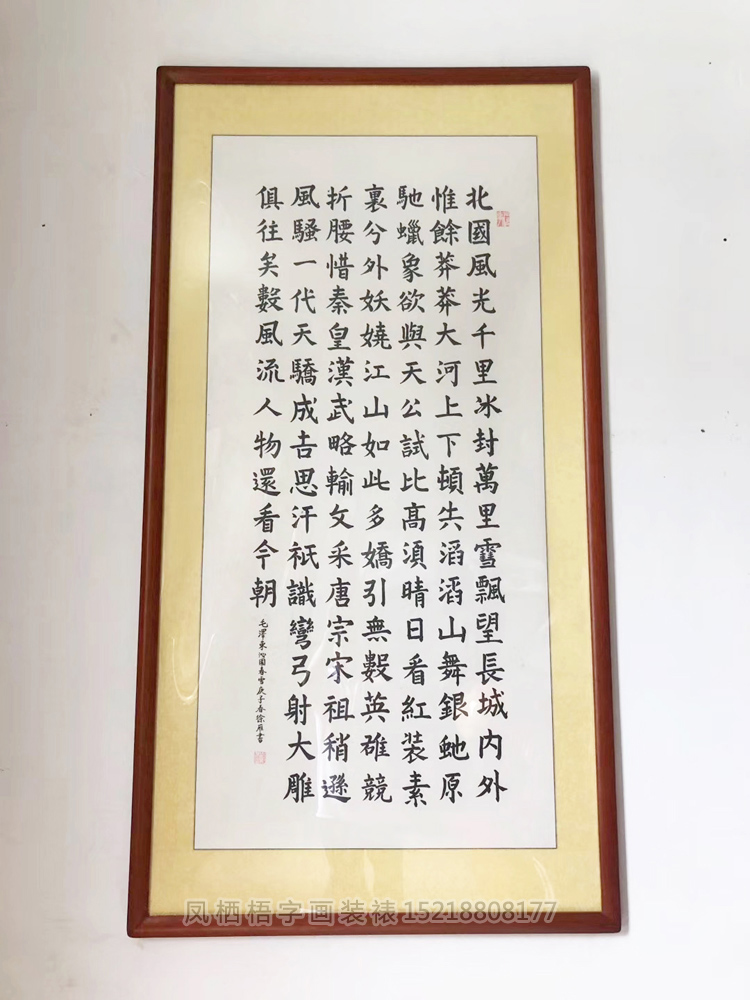 北國風光千里冰封萬里雪飄望長城内外
惟餘莽莽大河上下頓失滔滔山舞銀虵原
馳蠟象欲與天公試比高須晴日看紅装素
裹分外妖嬈江山如此多嬌引無數英雄競
折腰惜秦皇漢武略輸文采唐宗宋祖稍遜
風騷一代天驕成吉思汗祇識彎弓射大雕
俱往矣數風流人物還看今朝
毛澤東沁園春雪庚子春徐雁書
凤栖梧字画装裱15218808177